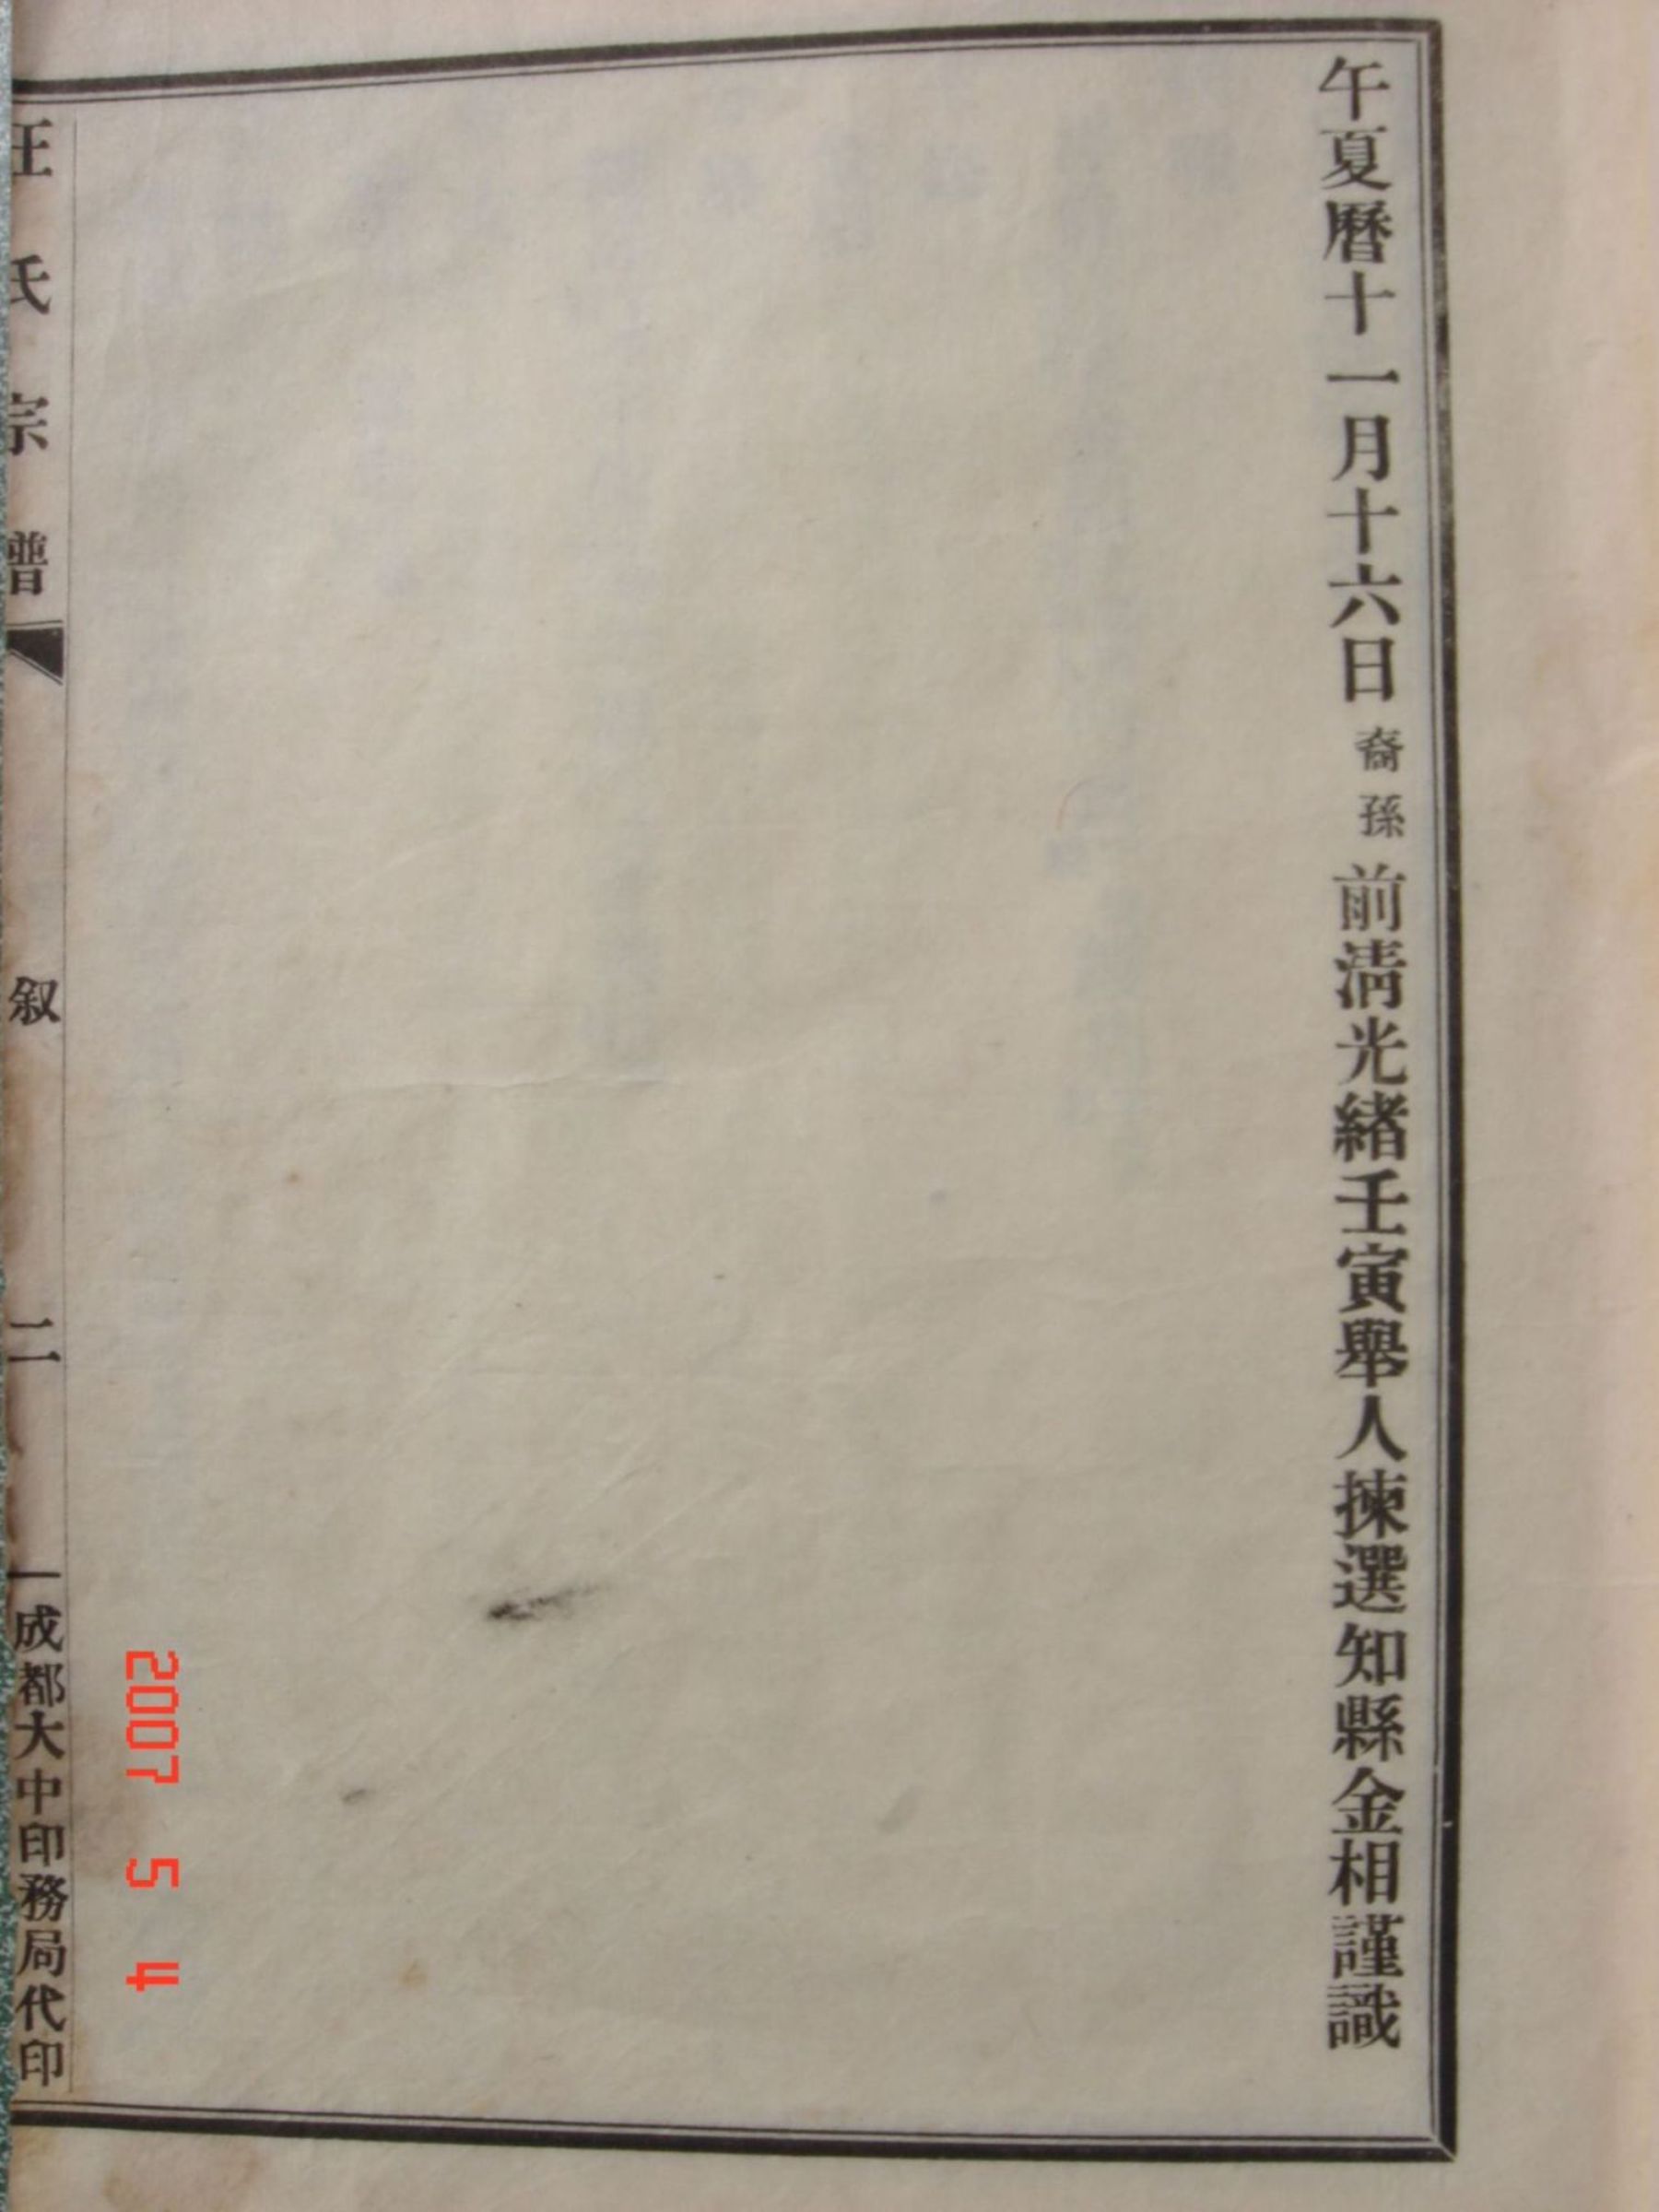 午夏曆十一月十六日裔孫前清光緒壬寅舉人揀選知縣金相謹識
汪氏宗譜 叙 二 成都大中印務局代印
2007 5 4